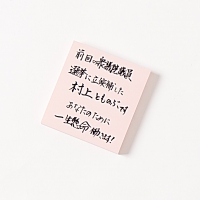 前回の衆議院議員
選挙に立候補した
村上とものぶです
あなたのために
一生懸命働きます!